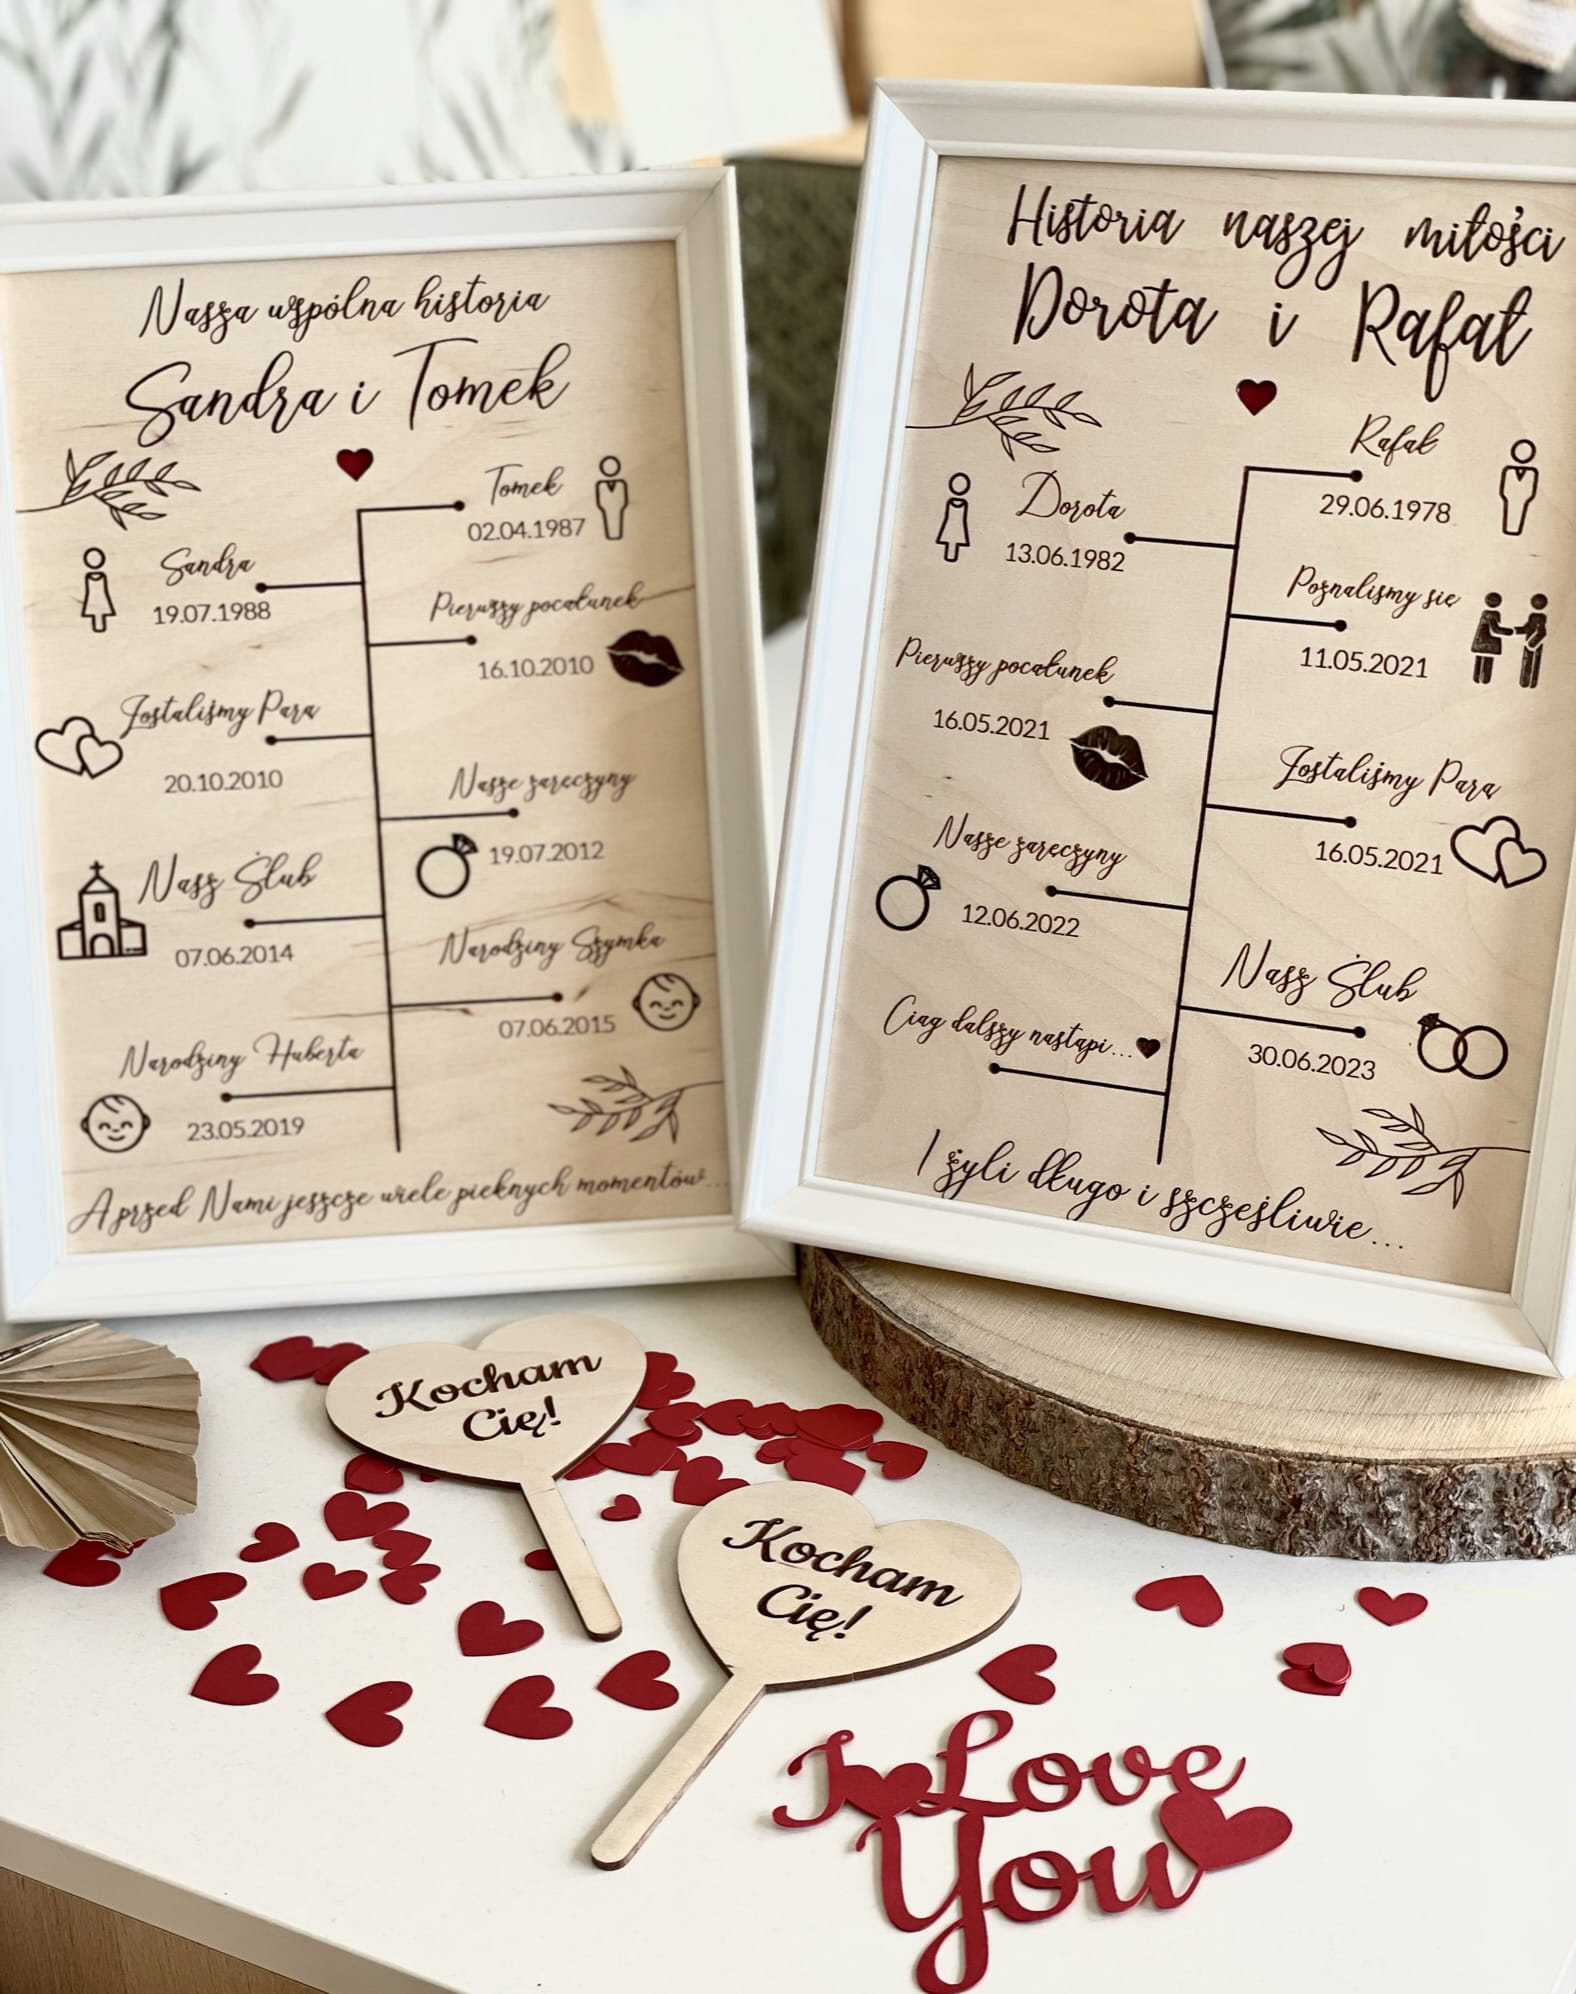 Nasza wspólna historia
Sandra i Tomek
Tomek
02.04.1987
Sandra
19.07.1988
Pierwszy pocałunek
16.10.2010
Zostaliśmy Parą
20.10.2010
Nasze zaręczyny
19.07.2012
Nasz Ślub
07.06.2014
Narodziny Szymka
07.06.2015
Narodziny Huberta
23.05.2019
A przed Nami jeszcze wiele pięknych momentów...
Historia naszej miłości
Dorota i Rafał
Rafał
29.06.1978
Dorota
13.06.1982
Poznaliśmy się
11.05.2021
Pierwszy pocałunek
16.05.2021
Zostaliśmy Parą
16.05.2021
Nasze zaręczyny
12.06.2022
Nasz Ślub
30.06.2023
Ciąg dalszy nastąpi...
I żyli długo i szczęśliwie...
Kocham
Cię!
Kocham
Cię!
I Love
You